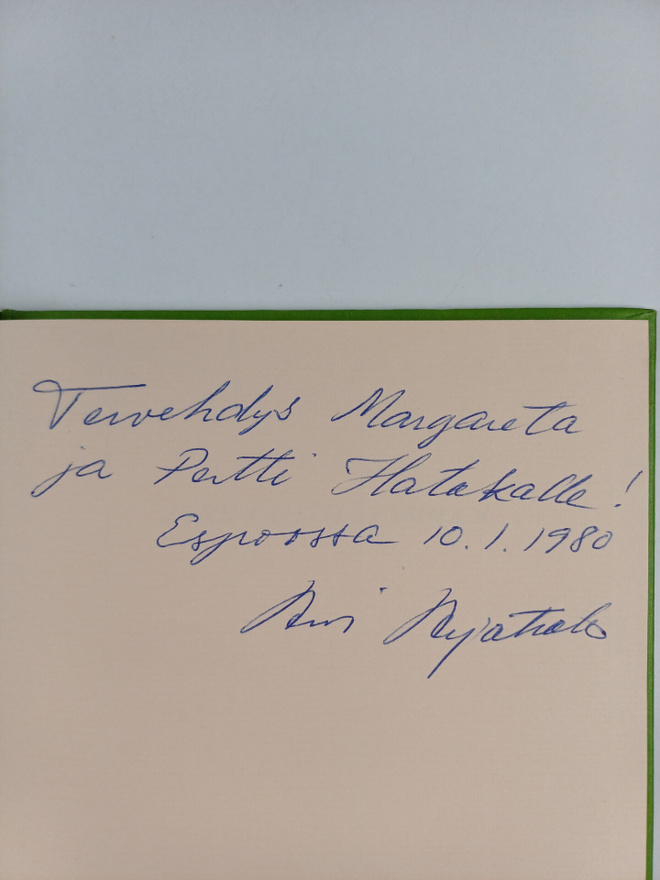 Tervehdys Margareta
ja Pertti Hatakalle!
Espoossa 10.1.1980